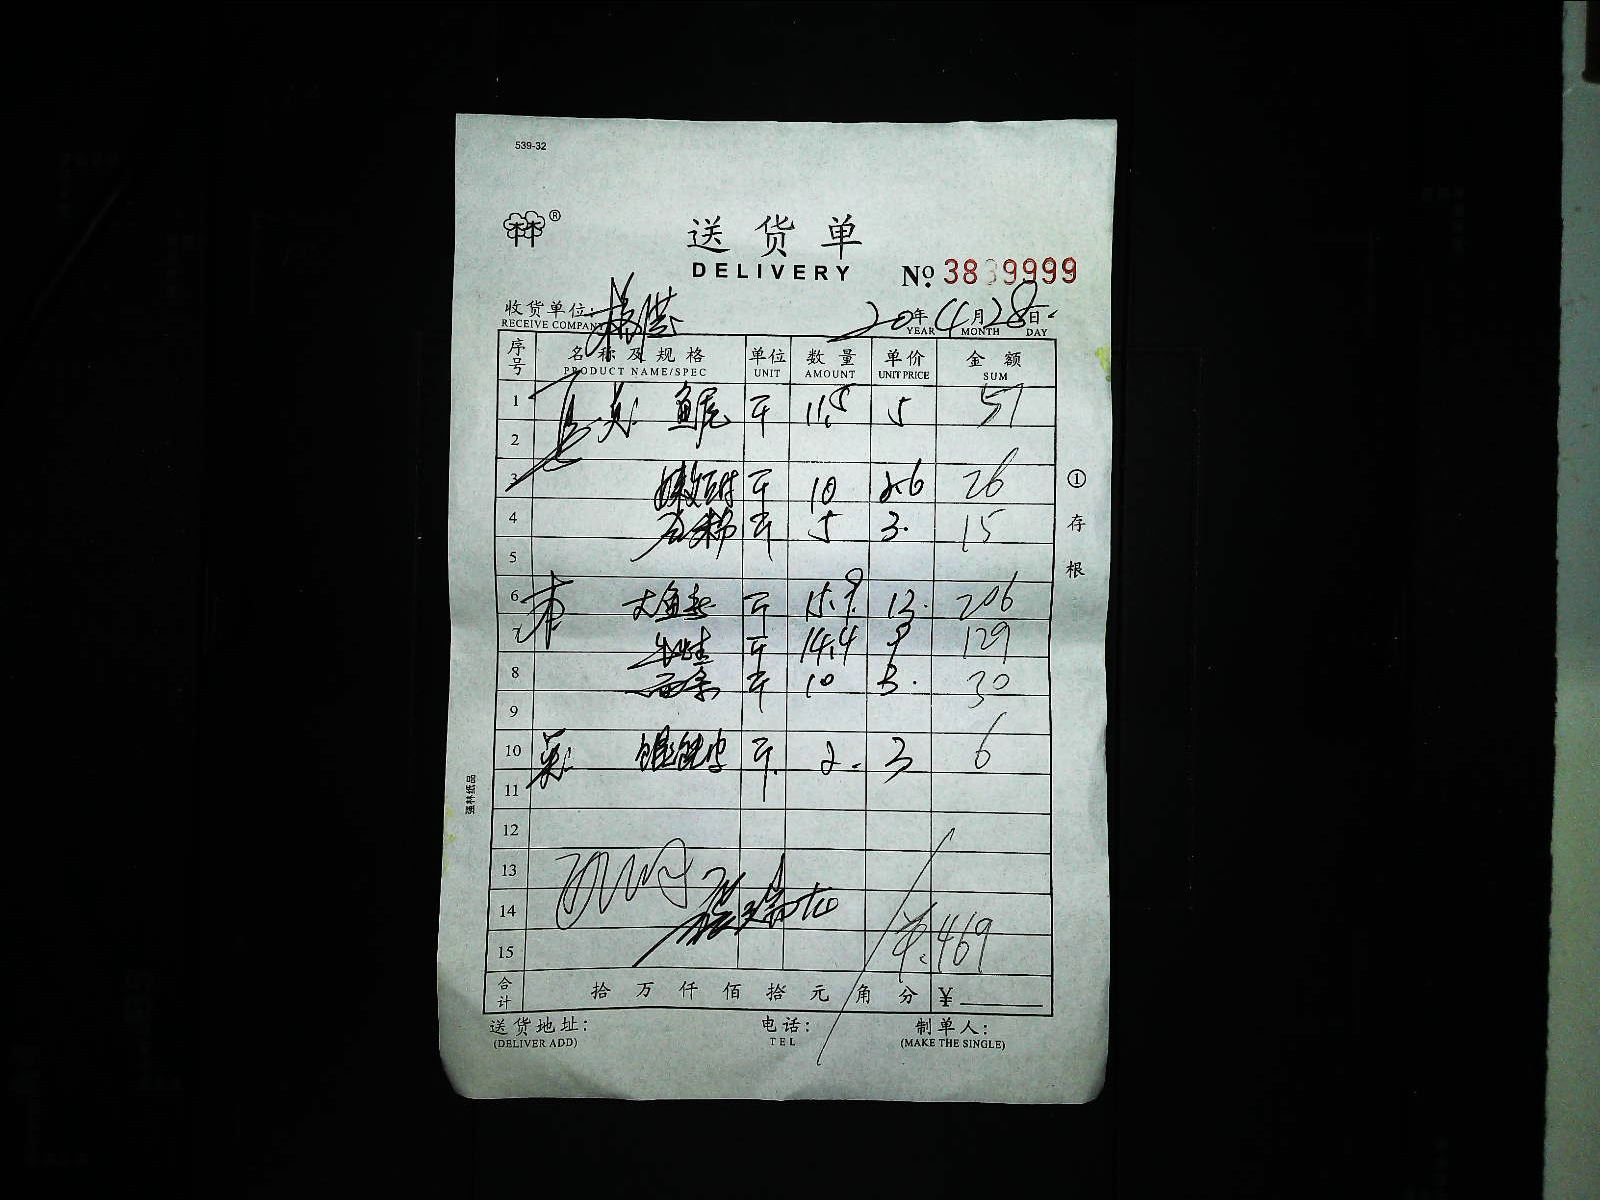 539-32
林®
送货单
DELIVERY
№. 3839999
收货单位: 20年4月28日
RECEIVE COMPANY YEAR MONTH DAY
序号 名称及规格 单位 数量 单价 金额
PRODUCT NAME/SPEC UNIT AMOUNT UNIT PRICE SUM
1 鱼尾 斤 11.5 5 57
2
3 嫩豆付 斤 10 2.6 26
4 斤 5 3. 15
5
6 大鱼 斤 15.9 13. 206
7 牛蛙 斤 14.4 9 129
8 斤 10 3. 30
9
10 馄饨皮 斤. 2. 3 6
11
12
13
14
15 469
合计 拾 万 仟 佰 拾 元 角 分 ¥
送货地址: 电话: 制单人:
(DELIVER ADD) TEL (MAKE THE SINGLE)
①存根
强林纸品